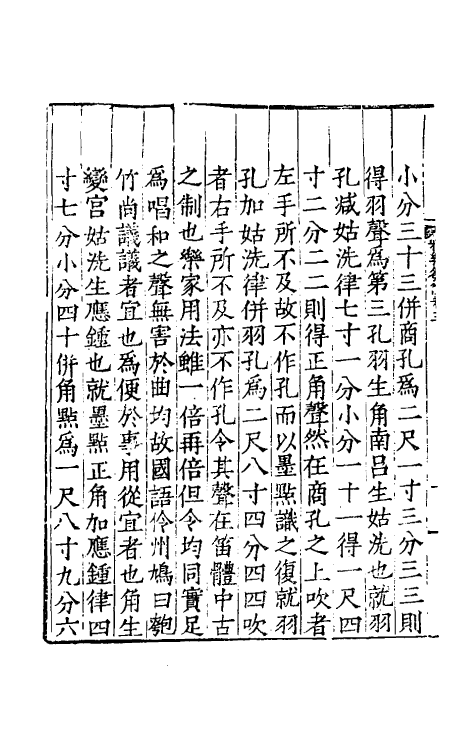 小分三十三併商孔爲二尺一寸三分三三則
得羽聲爲第三孔羽生角南呂生姑洗也就羽
孔减姑洗律七寸一分小分一十一得一尺四
寸二分二二則得正角聲然在商孔之上吹者
左手所不及故不作孔而以墨㸃識之復就羽
孔加姑洗律併羽孔爲二尺八寸四分四四吹
者右手所不及亦不作孔令其聲在笛體中古
之制也樂家用法雖一倍再倍但令均同實足
爲唱和之聲無害於曲均故國語伶州鳩曰匏
竹尚議議者宜也爲便於事用從宜者也角生
變宮姑洗生應鍾也就墨㸃正角加應鍾律四
寸七分小分四十併角㸃爲一尺八寸九分六